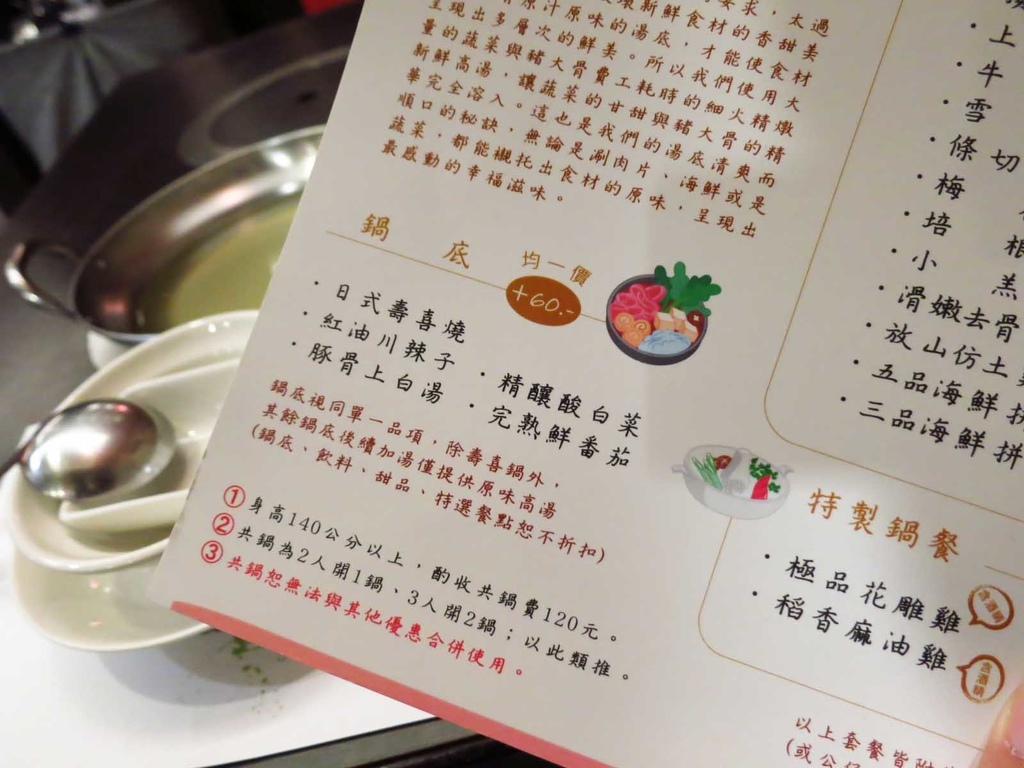 要求，太過
原汁原味的湯底，才能使食材
呈現出多層次的鮮美。所以我們使用大
量的蔬菜與豬大骨費工耗時的細火精燉
新鮮高湯，讓蔬菜的甘甜與豬大骨的精
華完全溶入。這也是我們的湯底清爽而
順口的秘訣，無論是涮肉片、海鮮或是
蔬菜，都能襯托出食材的原味，呈現出
最感動的幸福滋味。
鍋底 均一價
+60.-
・日式壽喜燒
・紅油川辣子
・豚骨上白湯
・精釀酸白菜
・完熟鮮番茄
鍋底視同單一品項，除壽喜鍋外，
其餘鍋底後續加湯僅提供原味高湯
(鍋底、飲料、甜品、特選餐點恕不折扣)
① 身高140公分以上，酌收共鍋費120元。
② 共鍋為2人開1鍋、3人開2鍋；以此類推。
③ 共鍋恕無法與其他優惠合併使用。
・上
・牛
・雪
・條 切
・梅
・培 根
・小 羔
・滑嫩去骨
・放山仿土
・五品海鮮拼
・三品海鮮拼
特製鍋餐
・極品花雕雞
・稻香麻油雞
含酒精
以上套餐皆附
(或公仔